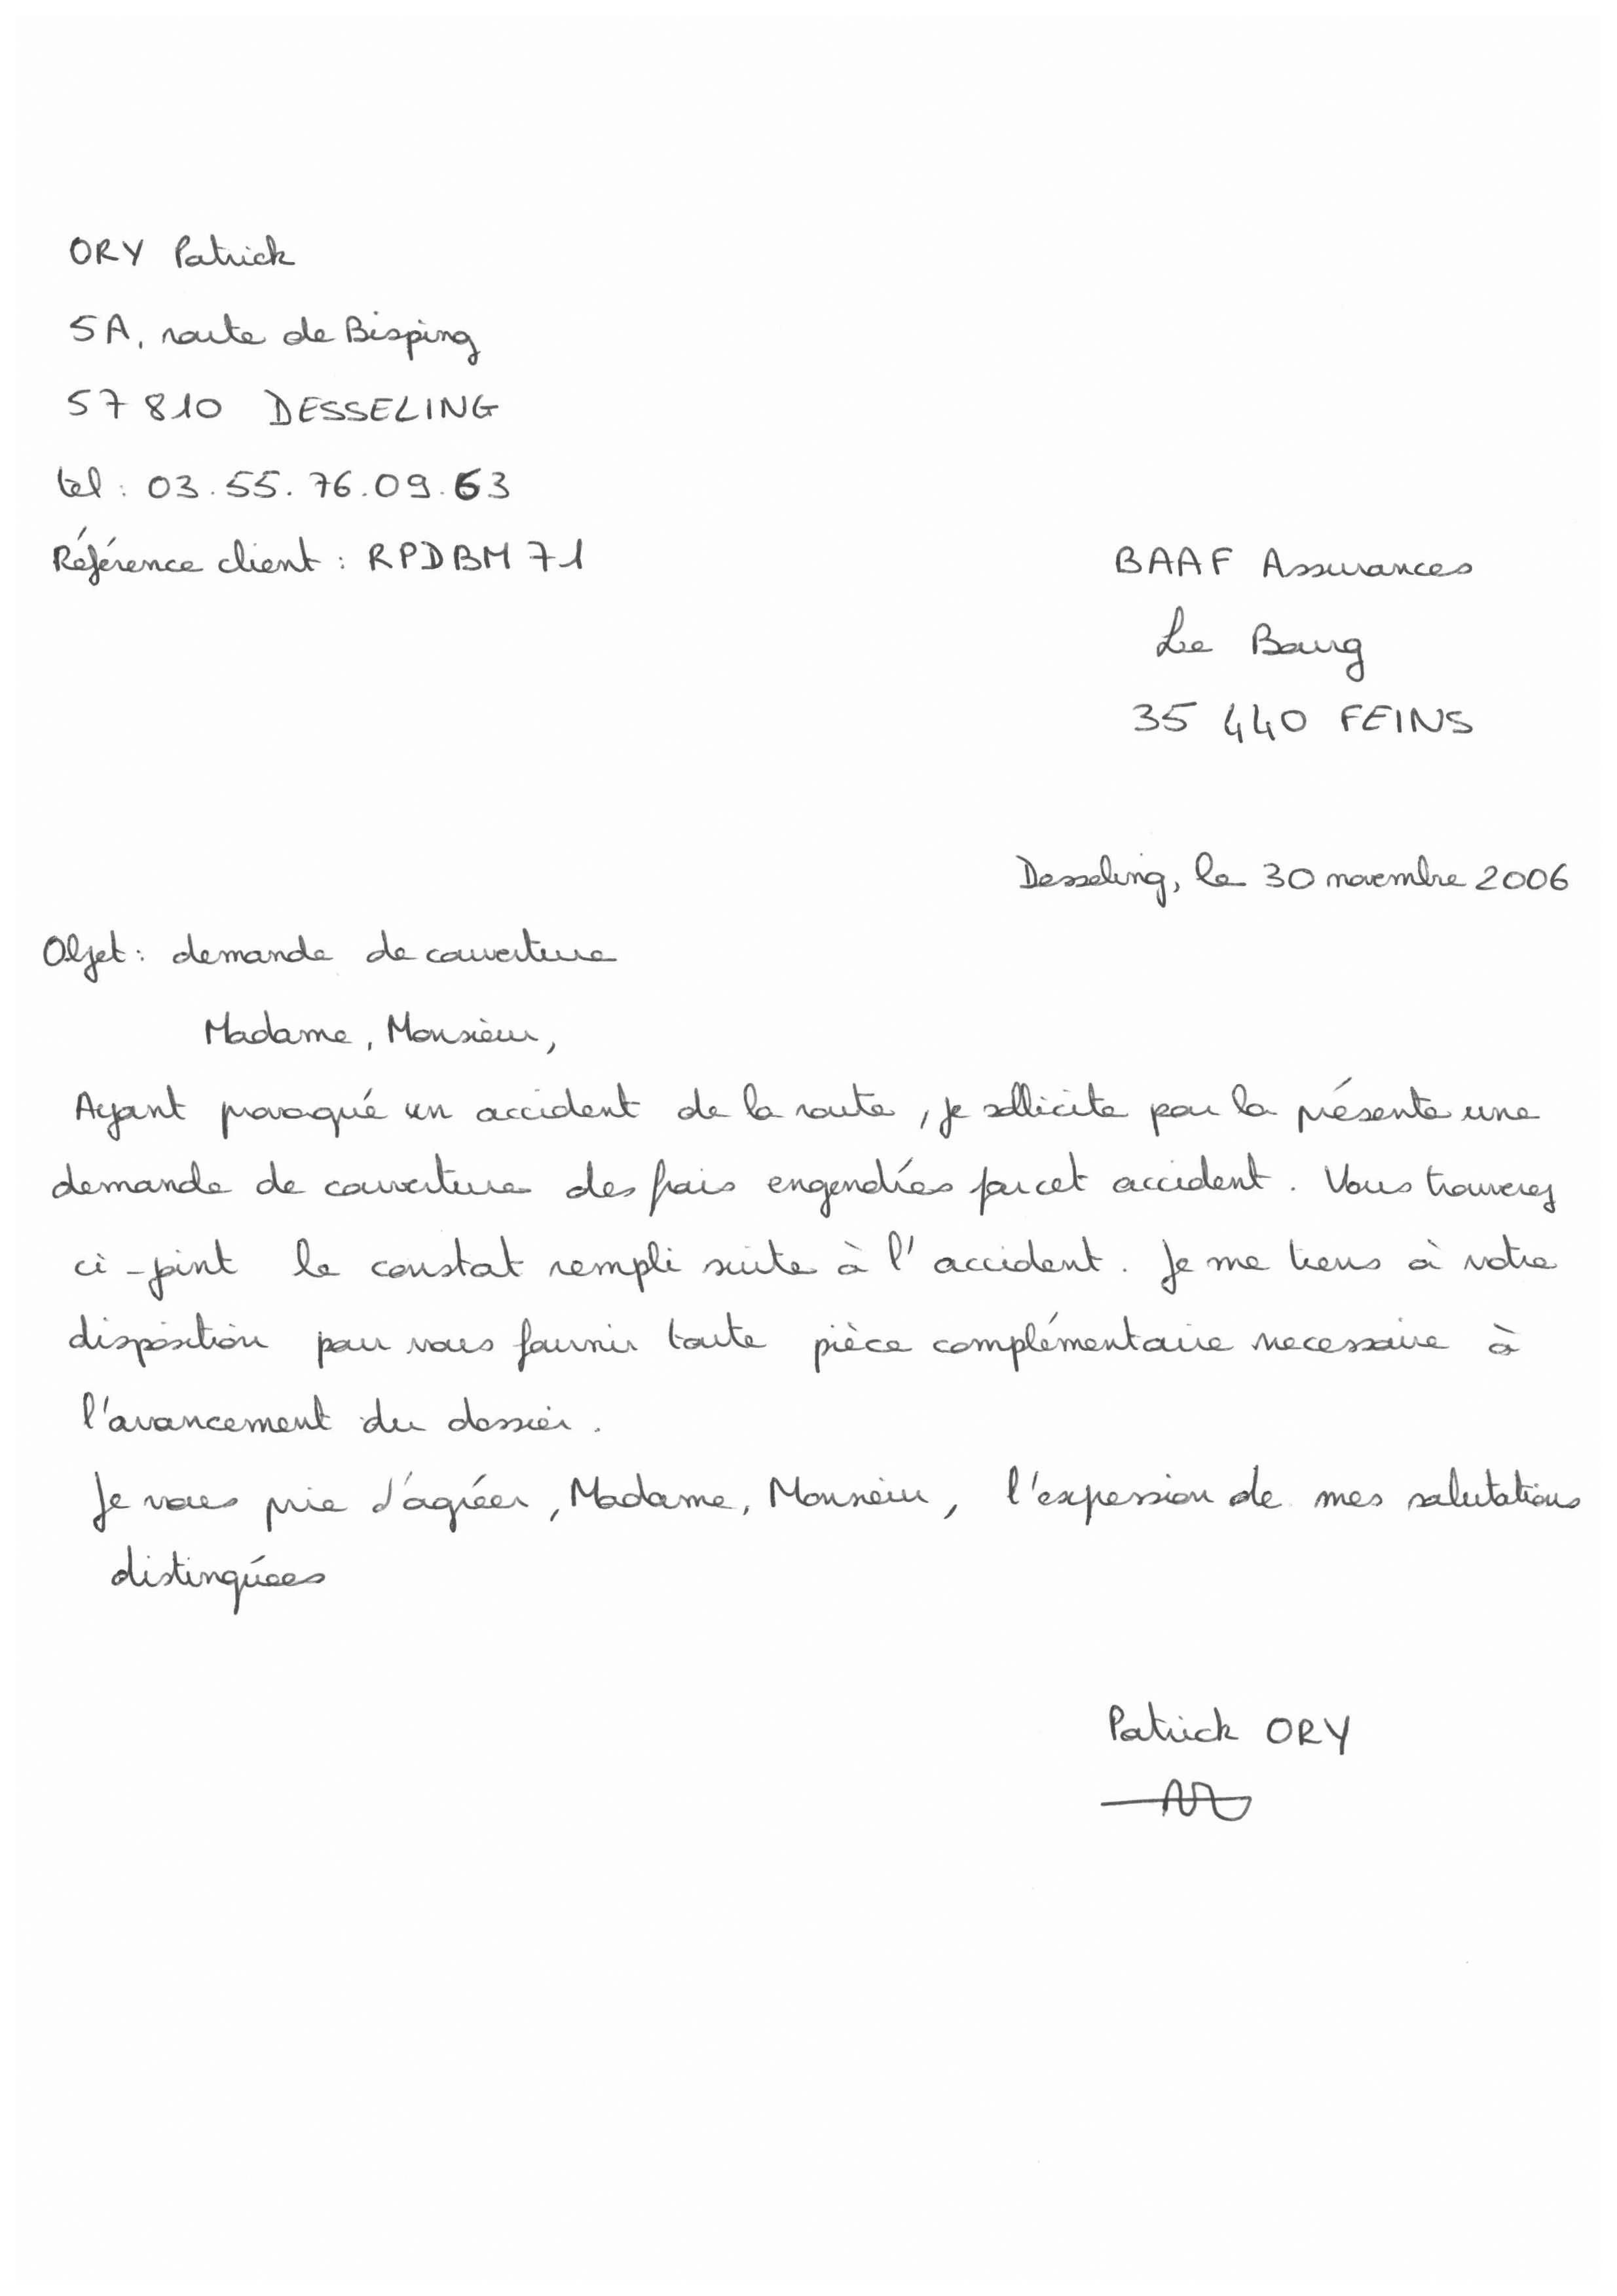 ORY Patrick
5A, route de Bisping
57810 DESSELING
tel : 03.55.76.09.63
Référence client : RPDBM71
BAAF Assurances
Le Bourg
35 440 FEINS
Desseling, le 30 novembre 2006
Objet : demande de couverture
Madame, Monsieur,
Ayant provoqué un accident de la route, je sollicite par la présente une
demande de couverture des frais engendrés par cet accident. Vous trouverez
ci-joint le constat rempli suite à l'accident. Je me tiens à votre
disposition pour vous fournir toute pièce complémentaire necessaire à
l'avancement du dossier.
Je vous prie d'agréer, Madame, Monsieur, l'expession de mes salutations
distinguées
Patrick ORY